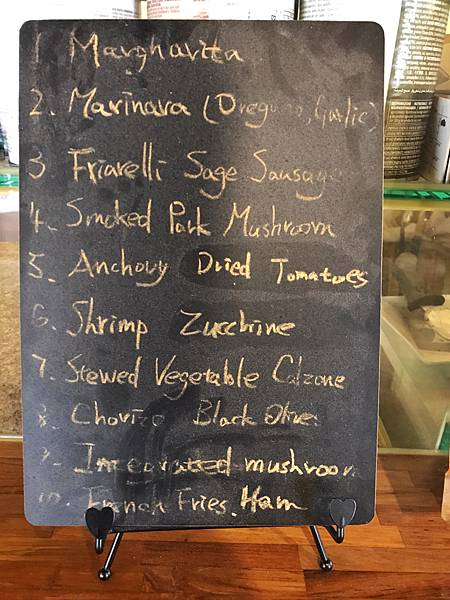 1 Margharita
2. Marinara (Oregano, Garlic)
3 Friarelli Sage Sausage
4. Smoked Park Mushroom
5. Anchovy Dried Tomatoes
6. Shrimp Zucchine
7. Stewed Vegetable Calzone
8. Chorizo Black Olive
9. Integrated mushroom
10. French Fries. Ham